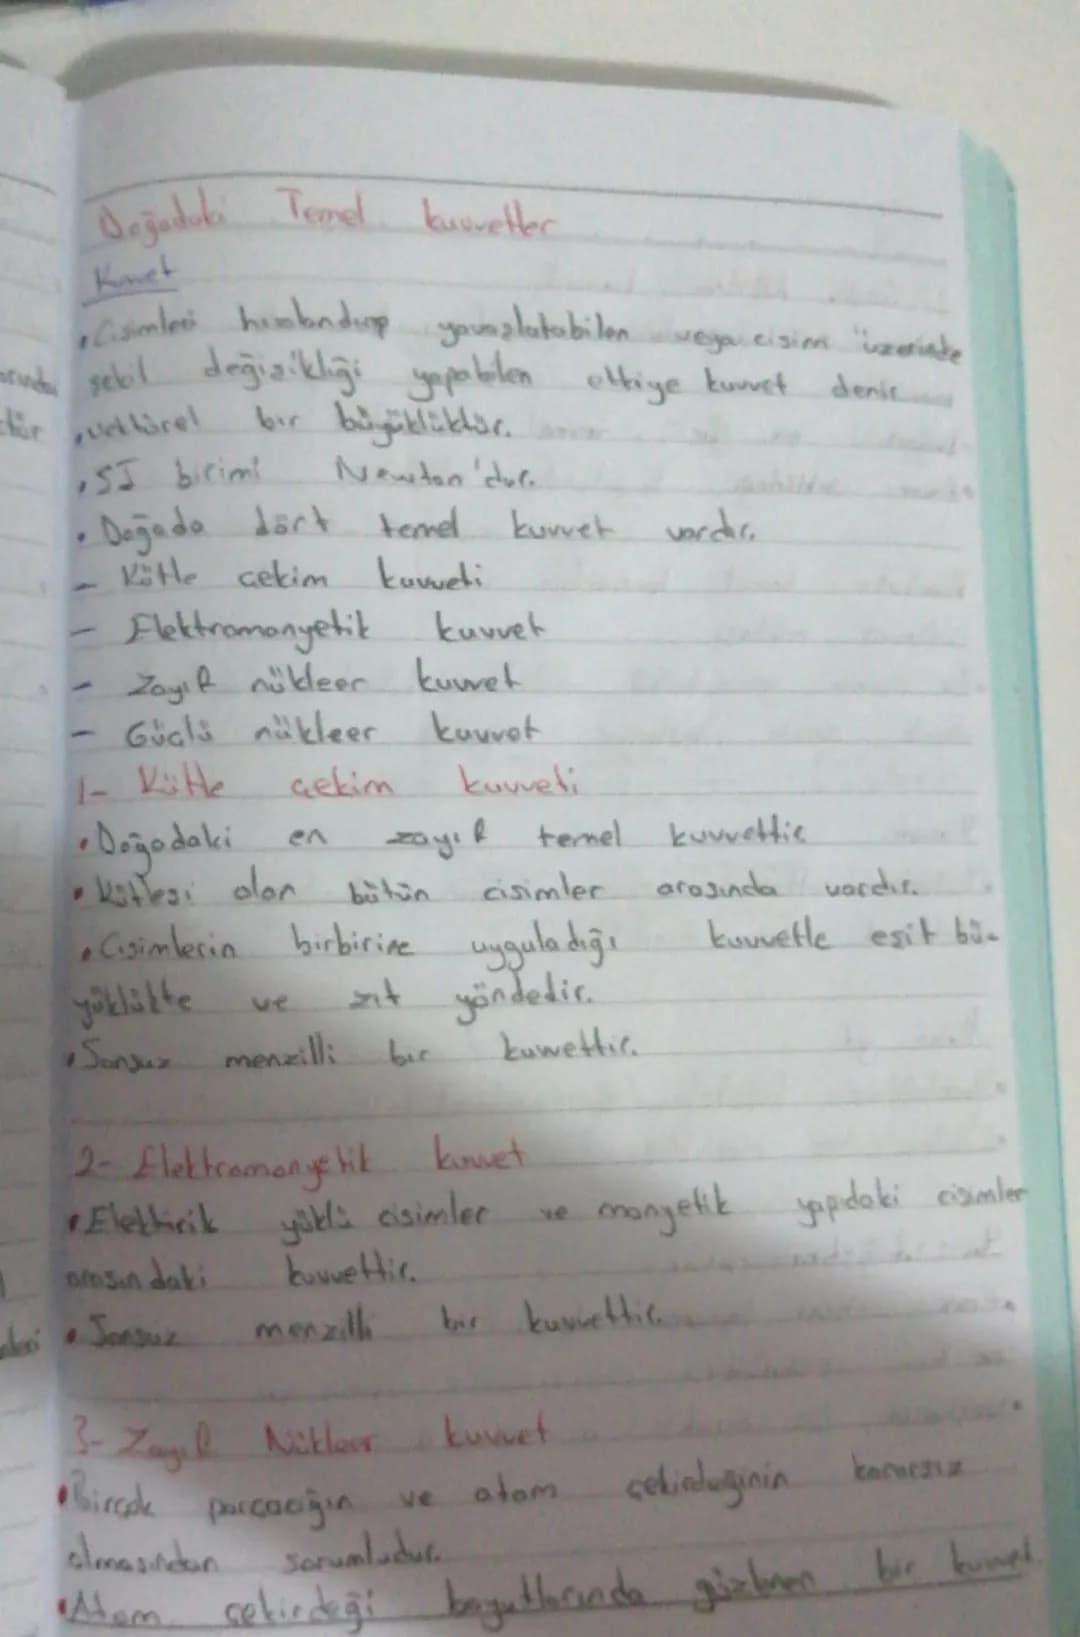 Doğadaki Temel kuvvetler
Kuvvet
Cisimleri hızlandırıp yavaşlatabilen veya cisim üzerinde
şekil değişikliği yapabilen etkiye kuvvet denir
vektörel bir büyüklüktür.
• SI birimi Newton'dur.
• Doğada dört temel kuvvet vardır.
- Kütle çekim kuvveti
- Elektromanyetik kuvvet
- Zayıf nükleer kuvvet
- Güçlü nükleer kuvvet
1- Kütle çekim kuvveti
• Doğadaki en zayıf temel kuvvettir
• Kütlesi olan bütün cisimler arasında vardır.
• Cisimlerin birbirine uyguladığı kuvvetle eşit bü-
yüklükte ve zıt yöndedir.
• Sonsuz menzilli bir kuvvettir.
2- Elektromanyetik kuvvet
• Elektirik yüklü cisimler ve manyetik yapıdaki cisimler
arasındaki kuvvettir.
• Sonsuz menzilli bir kuvvettir.
3- Zayıf Nükleer kuvvet
• Birçok parçacığın ve atom çekirdeğinin kararsız
olmasından sorumludur.
• Atom çekirdeği boyutlarında gözlenen bir kuvvet.